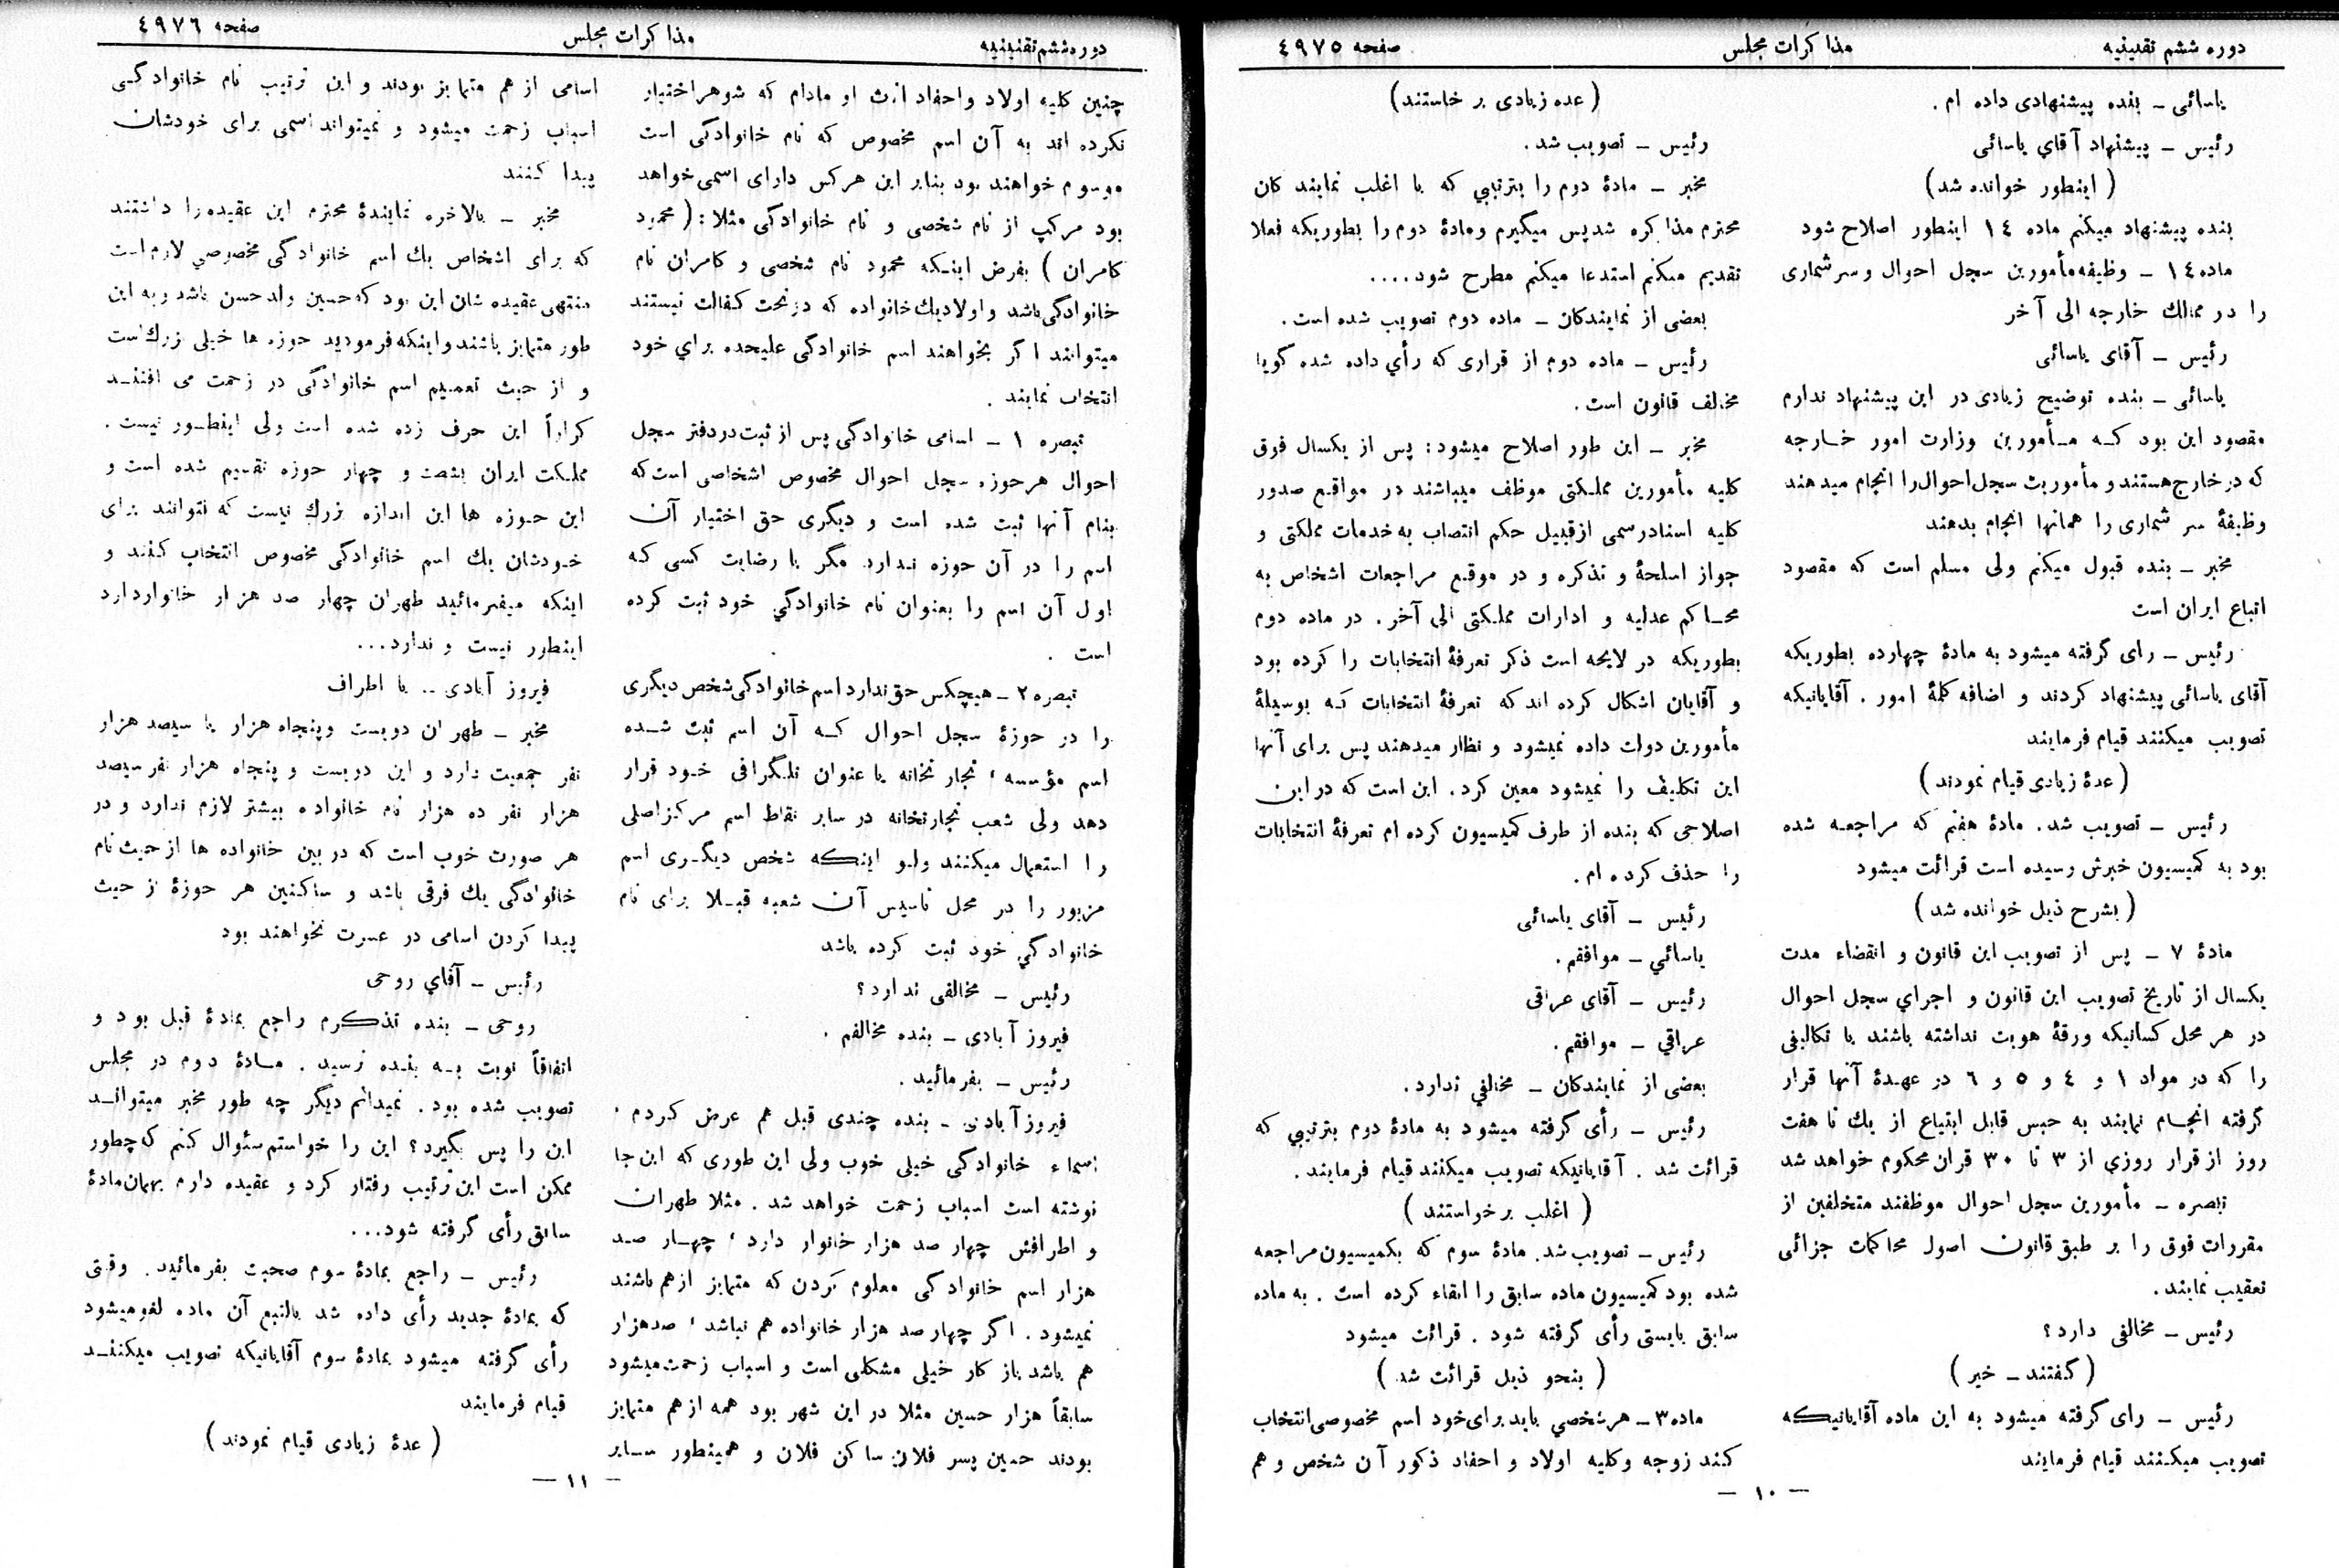 دوره ششم تقنینیه
مذاکرات مجلس
صفحه ٤٩٧٥
یاسائی ـ بنده پیشنهادی داده ام .
رئیس ـ پیشنهاد آقای یاسائی
( اینطور خوانده شد )
بنده پیشنهاد میکنم ماده ١٤ اینطور اصلاح شود
ماده ١٤ ـ وظیفه مأمورین سجل احوال و سرشماری
را در ممالك خارجه الی آخر
رئیس ـ آقای یاسائی
یاسائی ـ بنده توضیح زیادی در این پیشنهاد ندارم
مقصود این بود که مأمورین وزارت امور خارجه
که در خارج هستند و مأموریت سجل احوال را انجام میدهند
وظیفهٔ سر شماری را همانها انجام بدهند
مخبر ـ بنده قبول میکنم ولی مسلم است که مقصود
اتباع ایران است
رئیس ـ رای گرفته میشود به مادهٔ چهارده بطوریکه
آقای یاسائی پیشنهاد کردند و اضافه کلمهٔ امور . آقایانیکه
تصویب میکنند قیام فرمایند
( عدهٔ زیادی قیام نمودند )
رئیس ـ تصویب شد . مادهٔ هفتم که مراجعه شده
بود به کمیسیون خبرش رسیده است قرائت میشود
( بشرح ذیل خوانده شد )
مادهٔ ٧ ـ پس از تصویب این قانون و انقضاء مدت
یکسال از تاریخ تصویب این قانون و اجرای سجل احوال
در هر محل کسانیکه ورقهٔ هویت نداشته باشند یا تکالیفی
را که در مواد ١ و ٤ و ٥ و ٦ در عهدهٔ آنها قرار
گرفته انجام ننمایند به حبس قابل ابتیاع از یك تا هفت
روز از قرار روزی از ٣ تا ٣٠ قران محکوم خواهد شد
تبصره ـ مأمورین سجل احوال موظفند متخلفین از
مقررات فوق را بر طبق قانون اصول محاکمات جزائی
تعقیب نمایند .
رئیس ـ مخالفی دارد ؟
( گفتند ـ خیر )
رئیس ـ رای گرفته میشود به این ماده آقایانیکه
تصویب میکنند قیام فرمایند
( عده زیادی بر خاستند )
رئیس ـ تصویب شد .
مخبر ـ مادهٔ دوم را بترتیبی که با اغلب نمایندگان
محترم مذاکره شد پس میگیرم و مادهٔ دوم را بطوریکه فعلا
تقدیم میکنم استدعا میکنم مطرح شود . . . .
بعضی از نمایندگان ـ ماده دوم تصویب شده است .
رئیس ـ ماده دوم از قراری که رأی داده شده گویا
مخالف قانون است .
مخبر ـ این طور اصلاح میشود : پس از یکسال فوق
کلیه مأمورین مملکتی موظف میباشند در مواقع صدور
کلیه اسناد رسمی از قبیل حکم انتصاب به خدمات مملکتی و
جواز اسلحهٔ و تذکره و در موقع مراجعات اشخاص به
محاکم عدلیه و ادارات مملکتی الی آخر . در ماده دوم
بطوریکه در لایحه است ذکر تعرفهٔ انتخابات را کرده بود
و آقایان اشکال کرده اند که تعرفهٔ انتخابات که بوسیلهٔ
مأمورین دولت داده نمیشود و نظار میدهند پس برای آنها
این تکلیف را نمیشود معین کرد . این است که در این
اصلاحی که بنده از طرف کمیسیون کرده ام تعرفهٔ انتخابات
را حذف کرده ام .
رئیس ـ آقای یاسائی
یاسائی ـ موافقم .
رئیس ـ آقای عراقی
عراقی ـ موافقم .
بعضی از نمایندگان ـ مخالفی ندارد .
رئیس ـ رأی گرفته میشود به مادهٔ دوم بترتیبی که
قرائت شد . آقایانیکه تصویب میکنند قیام فرمایند .
( اغلب برخواستند )
رئیس ـ تصویب شد . مادهٔ سوم که بکمیسیون مراجعه
شده بود کمیسیون ماده سابق را ابقاء کرده است . به ماده
سابق بایستی رأی گرفته شود . قرائت میشود
( بنحو ذیل قرائت شد )
ماده ٣ ـ هر شخصی باید برای خود اسم مخصوصی انتخاب
کند زوجه و کلیه اولاد و احفاد ذکور آن شخص و هم
ـ ١٠ ـ
دوره ششم تقنینیه
مذاکرات مجلس
صفحه ٤٩٧٦
چنین کلیه اولاد و احفاد اناث او مادام که شوهر اختیار
نکرده اند به آن اسم مخصوص که نام خانوادگی است
موسوم خواهند بود بنابر این هرکس دارای اسمی خواهد
بود مرکب از نام شخصی و نام خانوادگی مثلا : ( محمود
کامران ) بفرض اینکه محمود نام شخصی و کامران نام
خانوادگی باشد و اولاد یك خانواده که در تحت کفالت نیستند
میتوانند اگر بخواهند اسم خانوادگی علیحده برای خود
انتخاب نمایند .
تبصره ١ ـ اسامی خانوادگی پس از ثبت در دفتر سجل
احوال هر حوزه سجل احوال مخصوص اشخاصی است که
بنام آنها ثبت شده است و دیگری حق اختیار آن
اسم را در آن حوزه ندارد مگر با رضایت کسی که
اول آن اسم را بعنوان نام خانوادگی خود ثبت کرده
است .
تبصره ٢ ـ هیچکس حق ندارد اسم خانوادگی شخص دیگری
را در حوزهٔ سجل احوال که آن اسم ثبت شده
اسم مؤسسه ، تجارتخانه یا عنوان تلگرافی خود قرار
دهد ولی شعب تجارتخانه در سایر نقاط اسم مرکز اصلی
را استعمال میکنند ولو اینکه شخص دیگری اسم
مزبور را در محل تاسیس آن شعبه قبلا برای نام
خانوادگی خود ثبت کرده باشد
رئیس ـ مخالفی ندارد ؟
فیروز آبادی ـ بنده مخالفم .
رئیس ـ بفرمائید .
فیروز آبادی ـ بنده چندی قبل هم عرض کردم ،
اسماء خانوادگی خیلی خوب ولی این طوری که این جا
نوشته است اسباب زحمت خواهد شد . مثلا طهران
و اطرافش چهار صد هزار خانوار دارد ، چهار صد
هزار اسم خانوادگی معلوم کردن که متمایز از هم باشند
نمیشود . اگر چهار صد هزار خانواده هم نباشد ، صد هزار
هم باشد باز کار خیلی مشکلی است و اسباب زحمت میشود
سابقاً هزار حسین مثلا در این شهر بود همه از هم متمایز
بودند حسین پسر فلان ساکن فلان و همینطور سایر
اسامی از هم متمایز بودند و این ترتیب نام خانوادگی
اسباب زحمت میشود و نمیتواند اسمی برای خودشان
پیدا کنند
مخبر ـ بالاخره نمایندهٔ محترم این عقیده را داشتند
که برای اشخاص یك اسم خانوادگی مخصوصی لازم است
منتهی عقیده شان این بود که حسین ولد حسن باشد و به این
طور متمایز باشند و اینکه فرمودید حوزه ها خیلی بزرك است
و از حیث تعمیم اسم خانوادگی در زحمت می افتند
کراراً این حرف زده شده است ولی اینطور نیست .
مملکت ایران بشصت و چهار حوزه تقسیم شده است و
این حوزه ها این اندازه بزرك نیست که نتوانند برای
خودشان یك اسم خانوادگی مخصوص انتخاب کنند و
اینکه میفرمائید طهران چهار صد هزار خانوار دارد
اینطور نیست و ندارد . . .
فیروز آبادی ـ با اطراف
مخبر ـ طهران دویست و پنجاه هزار یا سیصد هزار
نفر جمعیت دارد و این دویست و پنجاه هزار نفر سیصد
هزار نفر ده هزار نام خانواده بیشتر لازم ندارد و در
هر صورت خوب است که در بین خانواده ها از حیث نام
خانوادگی یك فرقی باشد و ساکنین هر حوزهٔ از حیث
پیدا کردن اسامی در عسرت نخواهند بود
رئیس ـ آقای روحی
روحی ـ بنده تذکرم راجع بمادهٔ قبل بود و
اتفاقاً نوبت به بنده نرسید . مادهٔ دوم در مجلس
تصویب شده بود . نمیدانم دیگر چه طور مخبر میتواند
این را پس بگیرد ؟ این را خواستم سئوال کنم که چطور
ممکن است این ترتیب رفتار کرد و عقیده دارم بهمان مادهٔ
سابق رأی گرفته شود . . .
رئیس ـ راجع بمادهٔ سوم صحبت بفرمائید . وقتی
که بمادهٔ جدید رأی داده شد بالتبع آن ماده لغو میشود
رأی گرفته میشود بمادهٔ سوم آقایانیکه تصویب میکنند
قیام فرمایند
( عدهٔ زیادی قیام نمودند )
ـ ١١ ـ